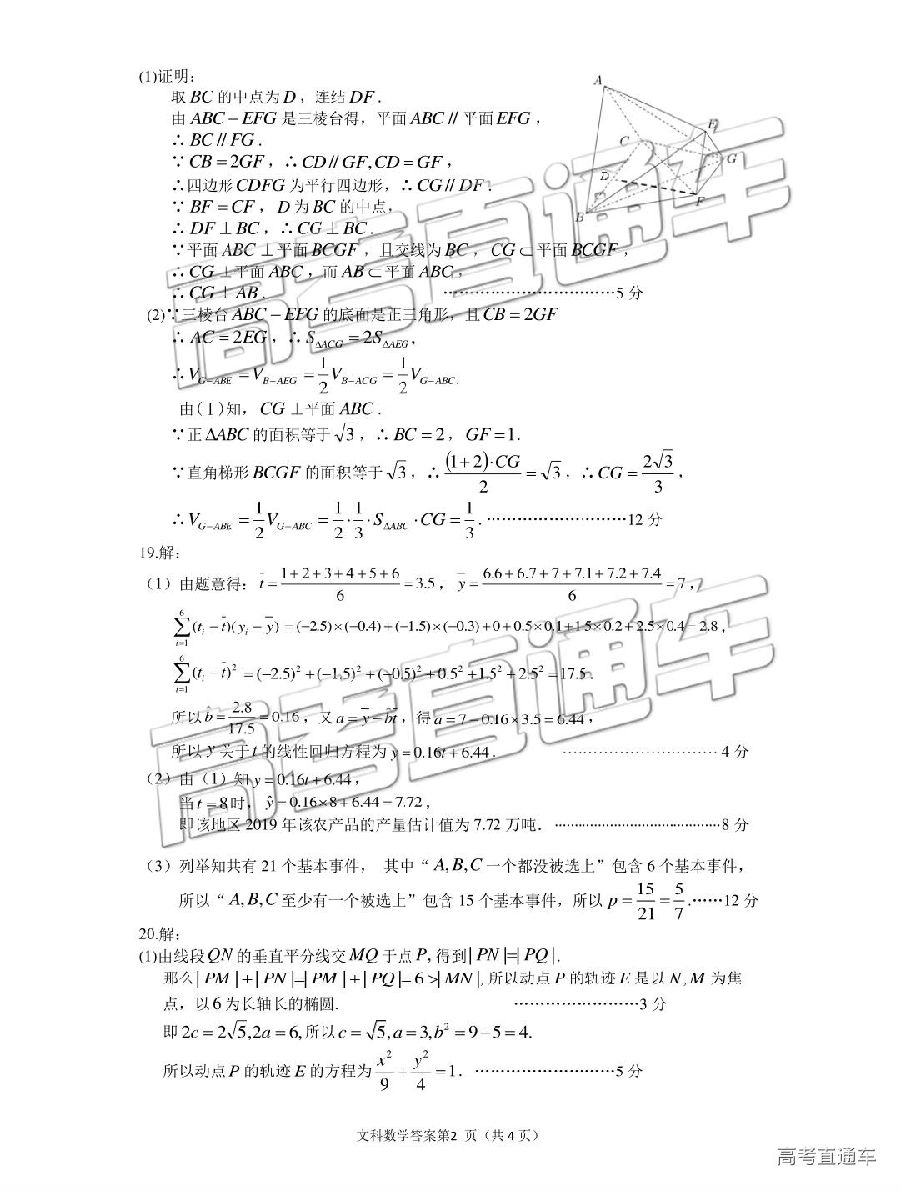 (1)证明:
取 BC 的中点为 D ，连结 DF .
由 ABC − EFG 是三棱台得，平面 ABC // 平面 EFG ，
∴ BC // FG .
∵ CB = 2GF ，∴ CD // GF, CD = GF ，
∴四边形 CDFG 为平行四边形，∴ CG // DF .
∵ BF = CF ， D 为 BC 的中点，
∴ DF ⊥ BC ，∴ CG ⊥ BC .
∵平面 ABC ⊥ 平面 BCGF ，且交线为 BC ， CG ⊂ 平面 BCGF ，
∴ CG ⊥ 平面 ABC ，而 AB ⊂ 平面 ABC ，
∴ CG ⊥ AB . ……………………………5 分
A
E
C
G
D
B
F
(2)∵三棱台 ABC − EFG 的底面是正三角形，且 CB = 2GF
∴ AC = 2EG ，∴ S△ACG = 2S△AEG ，
∴ V_{G−ABE} = V_{B−AEG} = 1/2 V_{B−ACG} = 1/2 V_{G−ABC} .
由(Ⅰ)知， CG ⊥平面 ABC .
∵正 △ABC 的面积等于 √3 ，∴ BC = 2 ， GF = 1 .
∵直角梯形 BCGF 的面积等于 √3 ，∴ (1+2)·CG/2 = √3 ，∴ CG = 2√3/3 ，
∴ V_{G−ABE} = 1/2 V_{G−ABC} = 1/2 · 1/3 · S△ABC · CG = 1/3 . ………………………12 分
19.解:
（1）由题意得: t̄ = (1+2+3+4+5+6)/6 = 3.5 ， ȳ = (6.6+6.7+7+7.1+7.2+7.4)/6 = 7 ，
∑_{i=1}^{6} (tᵢ − t̄)(yᵢ − ȳ) = (−2.5)×(−0.4)+(−1.5)×(−0.3)+0+0.5×0.1+1.5×0.2+2.5×0.4 = 2.8 ，
∑_{i=1}^{6} (tᵢ − t̄)² = (−2.5)²+(−1.5)²+(−0.5)²+0.5²+1.5²+2.5² = 17.5 .
所以 b̂ = 2.8/17.5 = 0.16 ，又 a = ȳ − b̂t̄ ，得 a = 7 − 0.16×3.5 = 6.44 ，
所以 y 关于 t 的线性回归方程为 y = 0.16t + 6.44 . ……………………………4 分
（2）由（1）知 y = 0.16t + 6.44 ，
当 t = 8 时， ŷ = 0.16×8 + 6.44 = 7.72 ，
即该地区 2019 年该农产品的产量估计值为 7.72 万吨． ……………………………8 分
（3）列举知共有 21 个基本事件， 其中“ A, B, C 一个都没被选上”包含 6 个基本事件，
所以“ A, B, C 至少有一个被选上”包含 15 个基本事件，所以 p = 15/21 = 5/7 .……12 分
20.解:
(1)由线段 QN 的垂直平分线交 MQ 于点 P, 得到| PN |=| PQ |.
那么| PM | + | PN |=| PM | + | PQ |= 6 >| MN |, 所以动点 P 的轨迹 E 是以 N, M 为焦
点，以 6 为长轴长的椭圆. …………………………3 分
即 2c = 2√5, 2a = 6, 所以 c = √5, a = 3, b² = 9 − 5 = 4.
所以动点 P 的轨迹 E 的方程为 x²/9 + y²/4 = 1． ………………………5 分
文科数学答案第2 页（共4页）
高考直通车
高考直通车
高考直通车